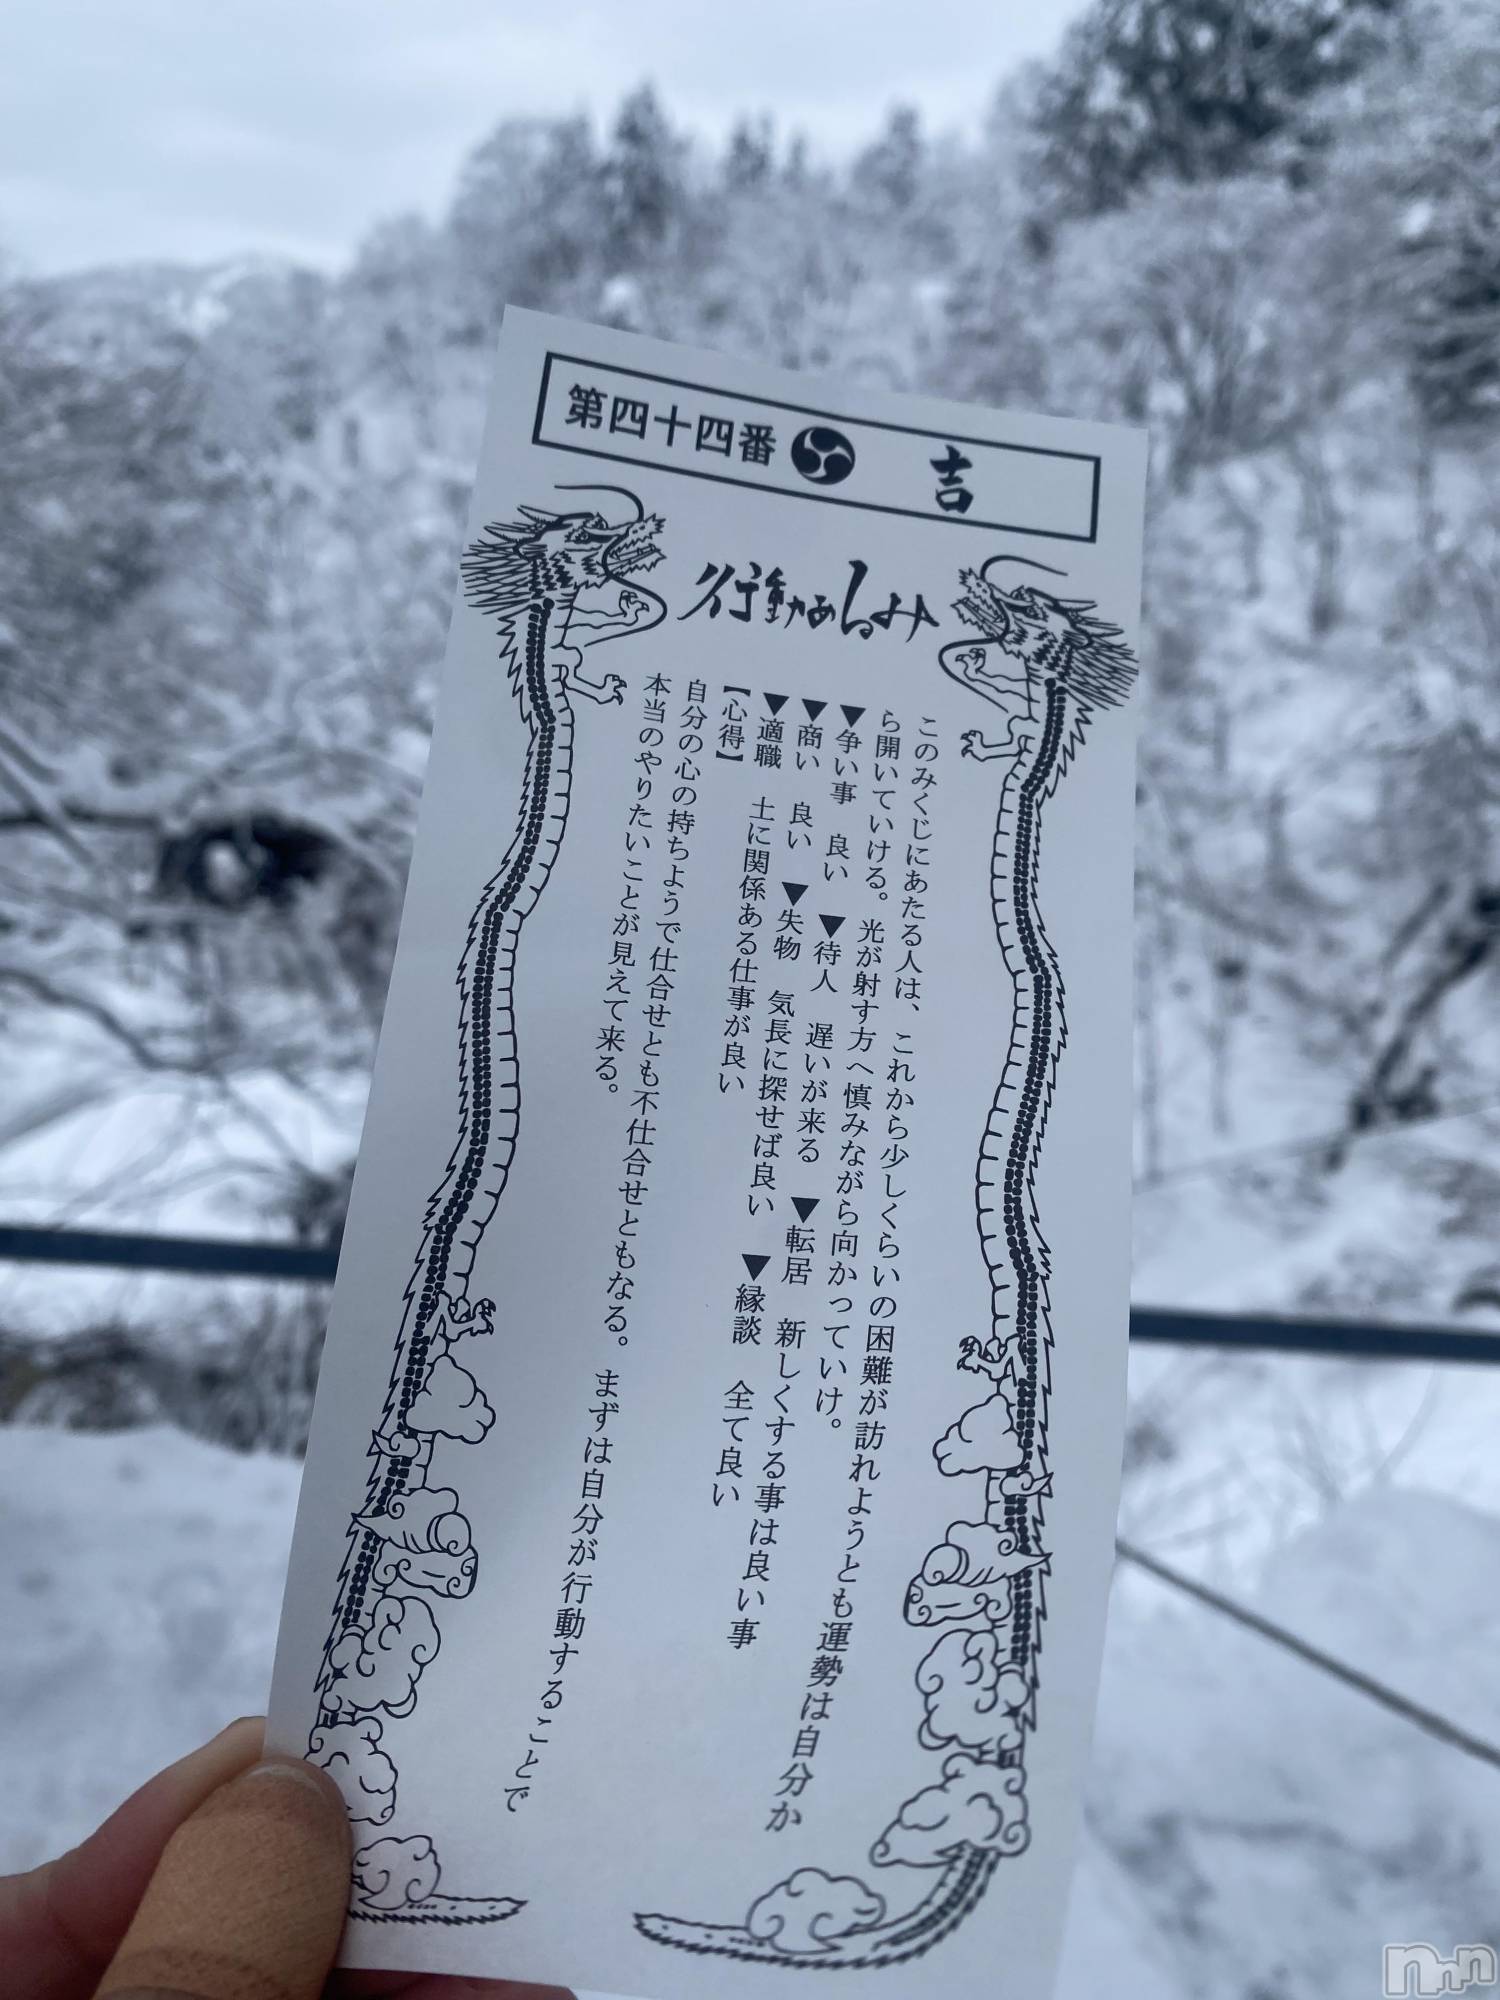 第四十四番 吉
行動あるのみ
このみくじにあたる人は、これから少しくらいの困難が訪れようとも運勢は自分か
ら開いていける。光が射す方へ慎みながら向かっていけ。
▼争い事 良い ▼待人 遅いが来る ▼転居 新しくする事は良い事
▼商い 良い ▼失物 気長に探せば良い ▼縁談 全て良い
▼適職 土に関係ある仕事が良い
【心得】
自分の心の持ちようで仕合せとも不仕合せともなる。まずは自分が行動することで
本当のやりたいことが見えて来る。
nnn